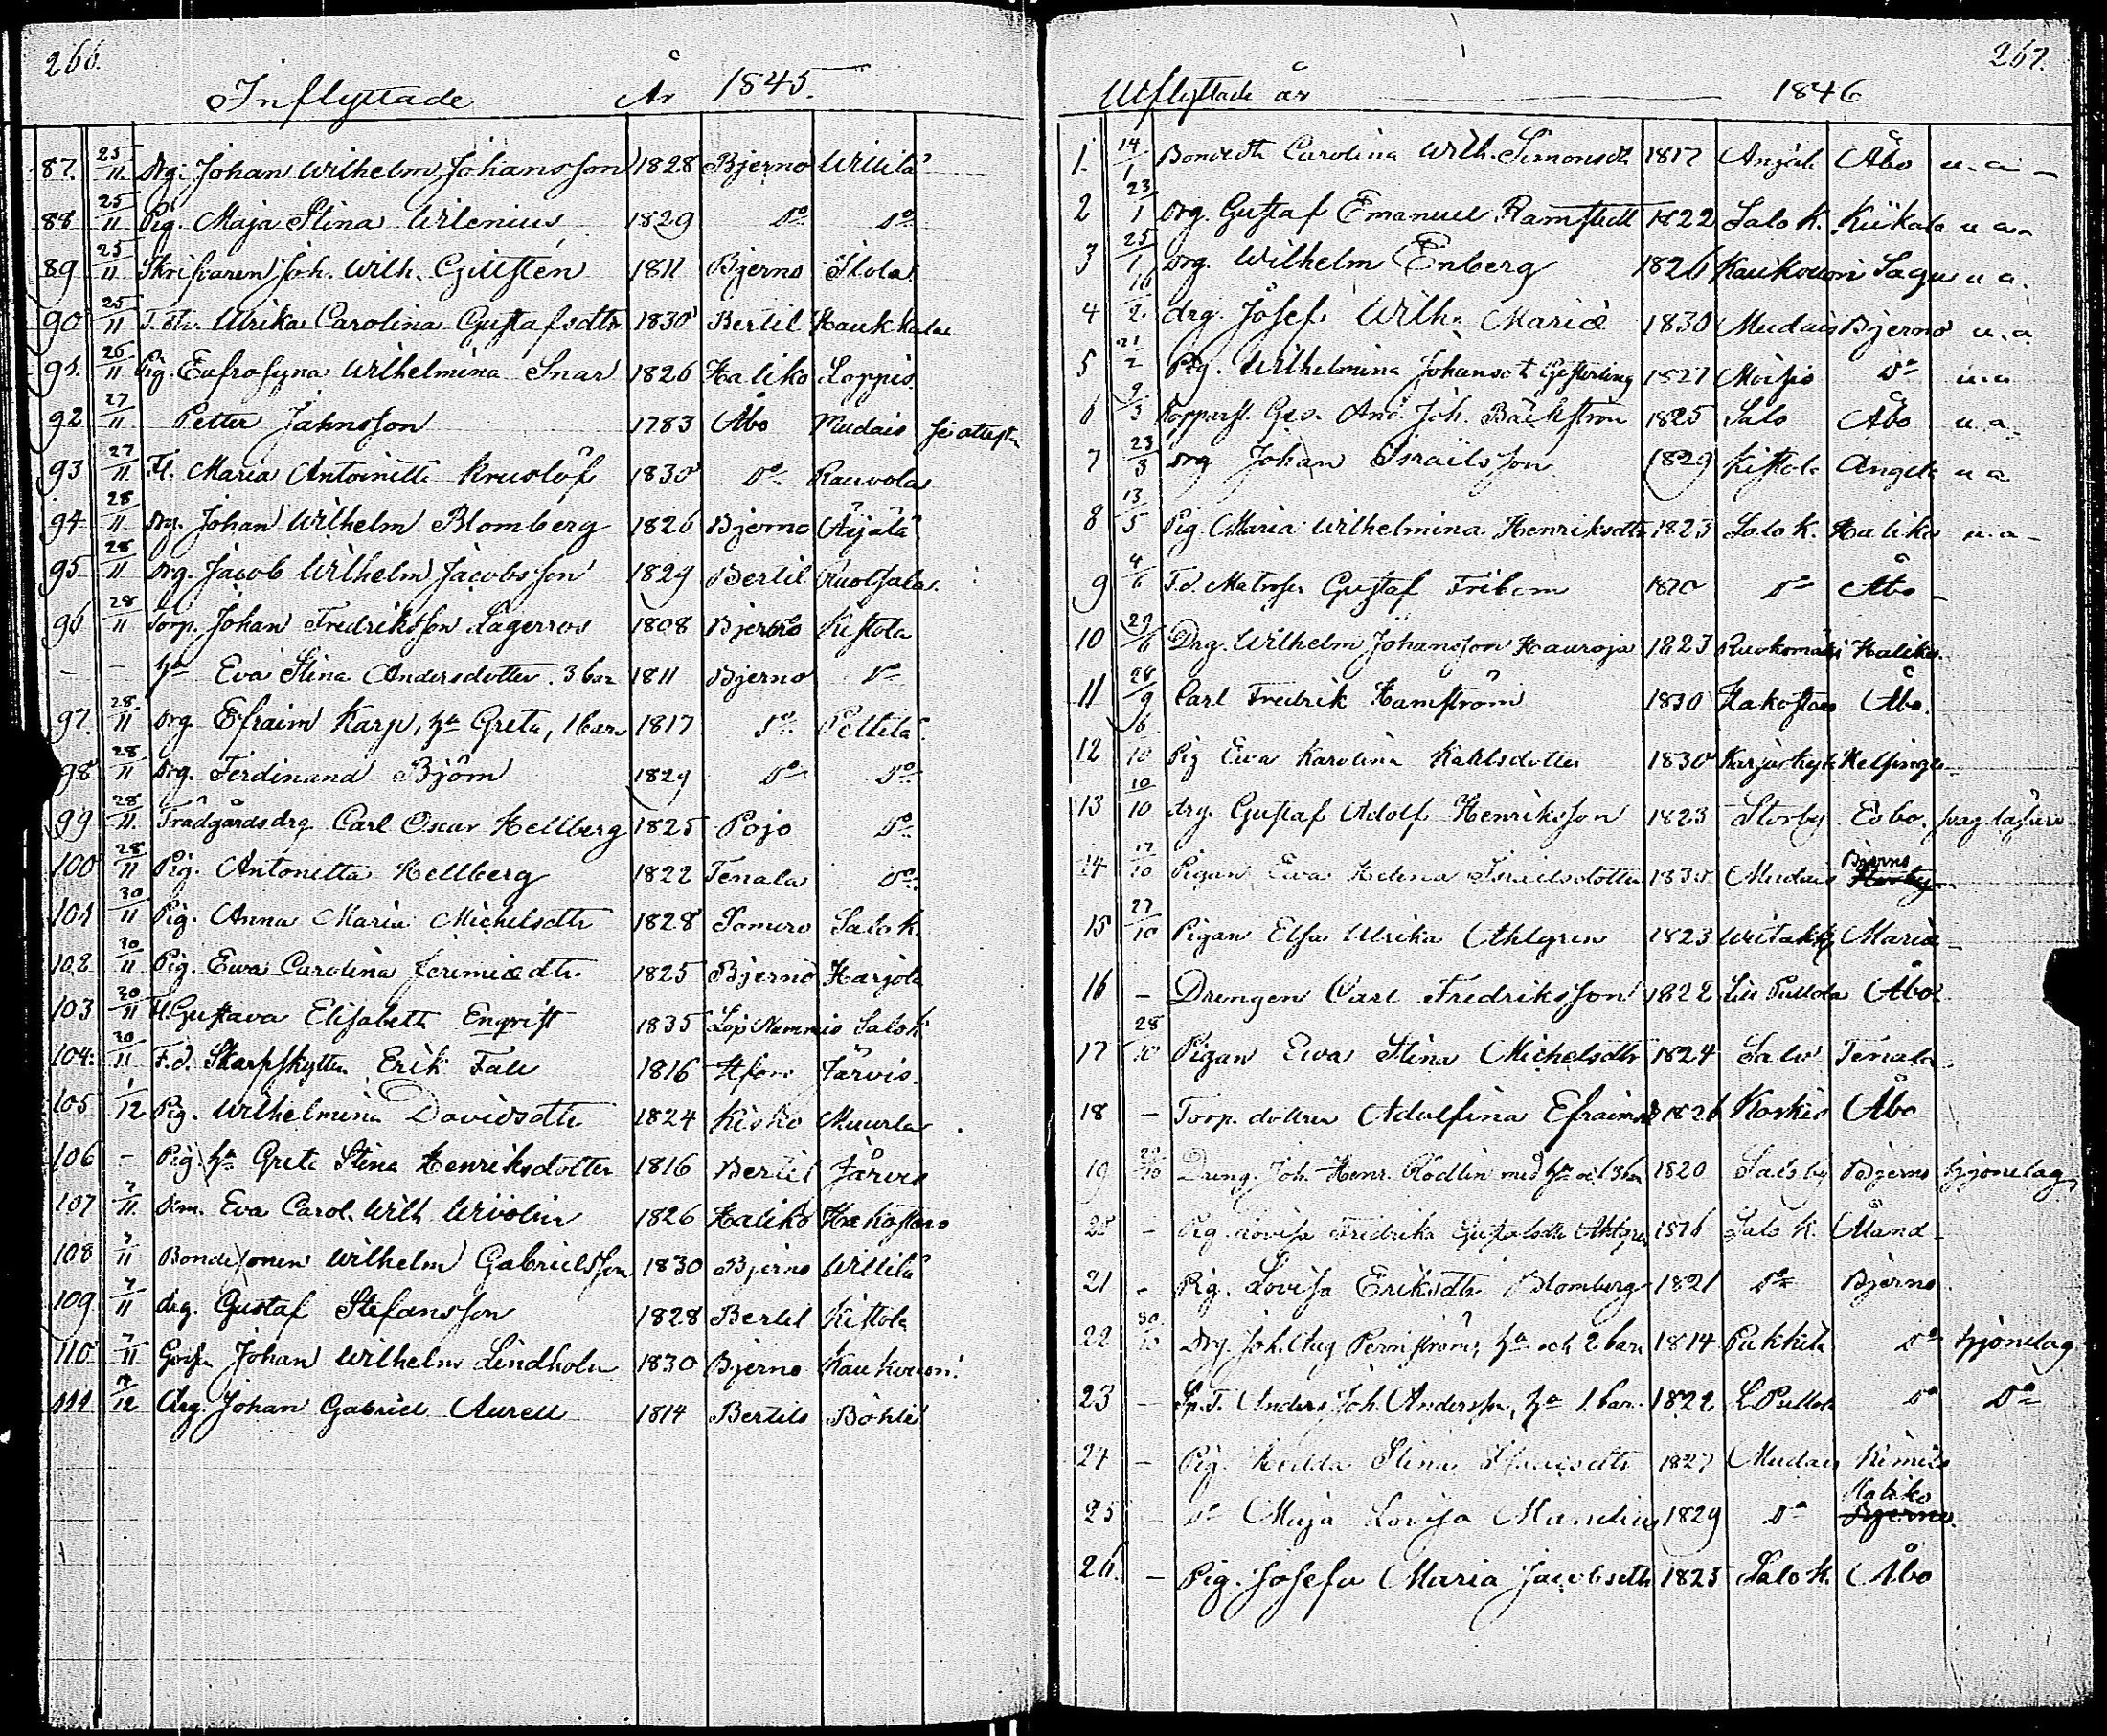 266.
Inflyttade År 1845.
87. 25/11 Drg. Johan Wilhelm Johansson 1828 Bjerno Wiilila
88 25/11 Pig. Maja Stina Wilenius 1829 Do Do
89 25/11 Skrifvaren Joh. Wilh. Gjillstén 1811 Bjerno
90 25/11 T. dtr. Ulrika Carolina Gustafsdtr 1830 Bertil Haukkala
91. 26/11 Pig. Eufrosyna Wilhelmina Snar 1826 Haliko Loppis.
92 27/11 Petter Jahnsson 1783 Åbo Mudais
93 27/11 Fl. Maria Antoinette 1830 Do Rauvola
94 28/11 Drg. Johan Wilhelm Blomberg 1826 Bjerno Äijälä
95 28/11 Drg. Jacob Wilhelm Jacobsson 1829 Bertil Ruotsala.
96 28/11 Torp. Johan Fredriksson Lagerroos 1808 Bjerno Kistola
- - hu Eva Stina Andersdotter. 3 bar 1811 Bjerno Do
97. 28/11 Drg Efraim Karp, hu Greta, 1 barn 1817 Do Peltila
98 28/11 Drg. Ferdinand Bjöm 1829 Do Do
99 28/11 Trädgårdsdrg Carl Oscar Hellberg 1825 Pojo Do
100 28/11 Pig. Antonetta Hellberg 1822 Tenala Do
101 30/11 Pig. Anna Maria Michelsdtr 1828 Somero Salo k.
102 30/11 Pig. Ewa Carolina Jeremiædtr 1825 Bjerno Karjola
103 30/11 Fl. Gustava Elisabeth Engvist 1835 Lojo Nummis Salo k
104. 30/11 F.d. Skarpskytten Erik Fale 1816 Hfors Järvis.
105 1/12 Pig. Wilhelmina Davidsdtr 1824 Kisko Muurla
106 - Pig. hu Greta Stina Henriksdotter 1816 Bertil Järvis
107 7/11 Dem. Eva Carol. Wilh 1826 Haliko Hakostaro
108 7/11 Bondesonen Wilhelm Gabrielsson 1830 Bjerno Wiilila
109 7/11 drg. Gustaf Stefansson 1828 Bertil Kistola
110 7/11 Johan Wilhelm Lindholm 1830 Bjerno Kaukvuori
111 14/12 drg. Johan Gabriel Aurell 1814 Bertils Böhle
267.
Utflyttade år 1846
1. 14/1 Bondedtr Carolina Wilh. Simonsdtr 1817 Anjäle Åbo u. a -
2 23/1 Drg. Gustaf Emanuel Ramstedt 1822 Salo k. Kiikala u a -
3 25/1 Drg. Wilhelm Enberg 1826 Kaukvuori Sagu u a.
4 16/2 drg. Josef Wilh. Mariæ 1830 Mudais Bjerno u. a
5 21/2 Pig. Wilhelmina Johansdt 1827 Moisio Do u. a
6 9/3 Kopparsl. Ges. And. Joh. Bäckström 1825 Salo Åbo u. a.
7 23/3 Drg Johan Israilsson 1829 Kistola Angela u a
8 13/5 Pig. Maria Wilhelmina Henriksdtr 1823 Salo k. Haliko u. a -
9 4/6 F.d. Matrosen Gustaf Fribom 1820 Do Åbo -
10 29/6 Drg. Wilhelm Johansson Hauroja 1823 Ruokomäki Haliko.
11 28/9 Carl Fredrik Hamström 1830 Hakostaro Åbo.
12 6/10 Pig Ewa Karolina Kahlsdotter 1830 Karjaskylä Helsinge -
13 10/10 drg. Gustaf Adolf Henriksson 1823 Storby Esbo. svag läsare
14 17/10 Pigan Eva Helena Israelsdotter 1830 Mudais Bjerno -
15 27/10 Pigan Elsa Ulrika Ahlgren 1823 Mariæ -
16 - Drengen Carl Fredriksson 1822 Lill Pullola Åbo
17 28/10 Pigan Ewa Stina Michelsdtr 1824 Salo Tenala
18 - Torp. dottren Adolfina Efraimsd 1826 Koskis Åbo
19 29/10 Dreng. Joh. Henr. Rödlin med hu och 3 bar 1820 Salo by Bjerno hjonelag
20 - Pig. Lovisa Fredrika Gustafsdtr Ahlgren 1816 Salo k. Åland -
21 - Pig. Lovisa Eriksdtr Blomberg 1821 Do Bjerno
22 30/10 Drg. Joh. Aug Pernström, hu och 2 barn 1814 Pukkila Do hjonelag
23 - Sp.T. Anders Joh. Andersson, hu 1. bar. 1822 L Pullola Do Do
24 - Pig. Hedda Stina 1827 Mudais Kimito
25 - Do Maja Lovisa Mandelius 1829 Do Haliko
26. - Pig. Josefa Maria Jacobsdtr 1825 Salo k. Åbo